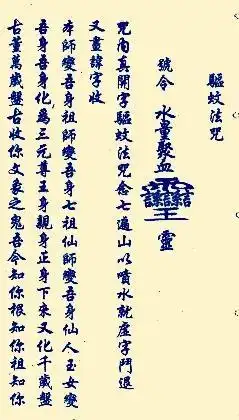 驅蚊法咒
號令 水量聚血 靈
咒內真開字驅蚊法咒念七遍山以噴水就虛字鬥退
又畫諱字收
本師變吾身祖師變吾身七祖仙師變吾身仙人玉女變
吾身吾身化為三元尊王身親身正身下來又化千歲盤
古董萬歲盤古收你文象之鬼吾今知你根知你祖知你